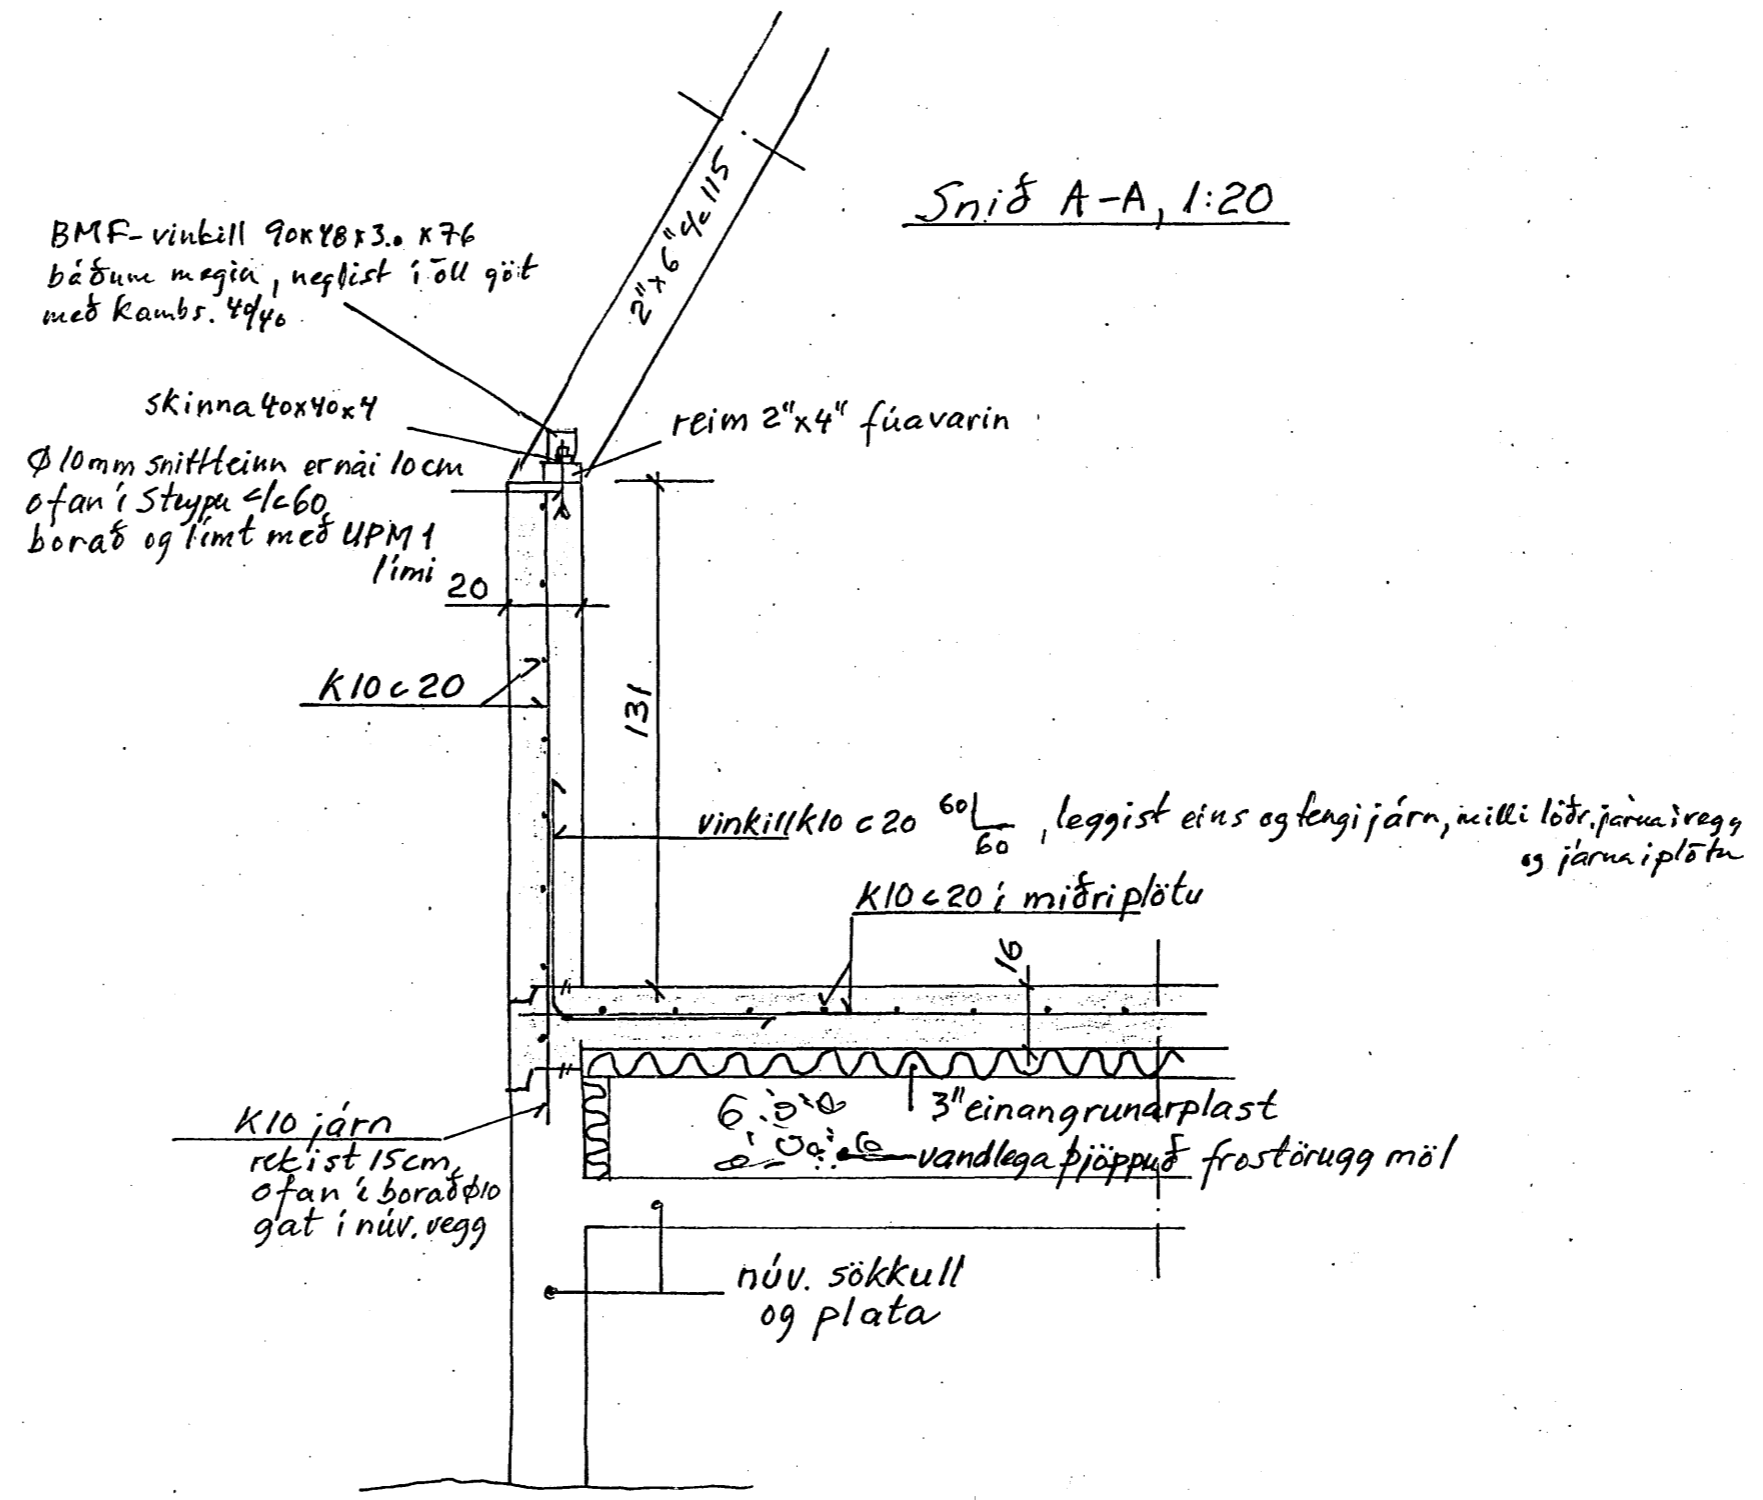 Snið A-A, 1:20
2"x6" c/c 115
BMF-vinkill 90x48x3.0 x76
báðum megin, neglist í öll göt
með kambs. 40/40
skinna 40x40x4
reim 2"x4" fúavarin
Ø10mm snittteinn er nái 10cm
ofan í steypu c/c 60
borað og límt með UPM 1
lími
20
K10 c 20
131
vinkill K10 c 20 60 60, leggist eins og tengijárn, milli lóðr. járna í vegg
og járna í plötu
K10 c 20 í miðri plötu
16
3" einangrunarplast
vandlega þjöppuð frostörugg möl
K10 járn
rekist 15cm
ofan í borað Ø10
gat í núv. vegg
núv. sökkull
og plata